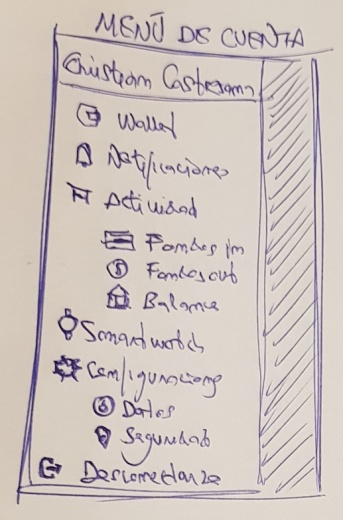 MENÚ DE CUENTA
Christiam
Wallet
Notificaciones
Actividad
Fondos in
Fondos out
Balance
Smartwatch
Configuraciones
Datos
Seguridad